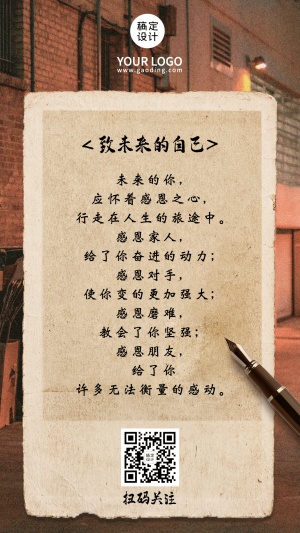 稿定
设计
YOUR LOGO
www.gaoding.com
<致未来的自己>
未来的你，
应怀着感恩之心，
行走在人生的旅途中。
感恩家人，
给了你奋进的动力；
感恩对手，
使你变的更加强大；
感恩磨难，
教会了你坚强；
感恩朋友，
给了你
许多无法衡量的感动。
稿定
设计
扫码关注